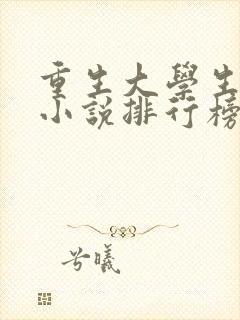 重生大學生
小說排行榜
兮曦